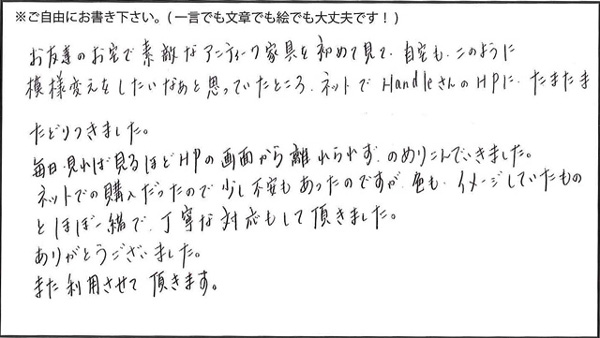 ※ご自由にお書き下さい。(一言でも文章でも絵でも大丈夫です！)
お友達のお宅で素敵なアンティーク家具を初めて見て、自宅も、このように
模様変えをしたいなあと思っていたところ、ネットでHandleさんのHPに、たまたま
たどりつきました。
毎日見れば見るほどHPの画面から離れられず、のめりこんでいきました。
ネットでの購入だったので少し不安もあったのですが、色も、イメージしていたもの
とほぼ一緒で、丁寧な対応もして頂きました。
ありがとうございました。
また利用させて頂きます。